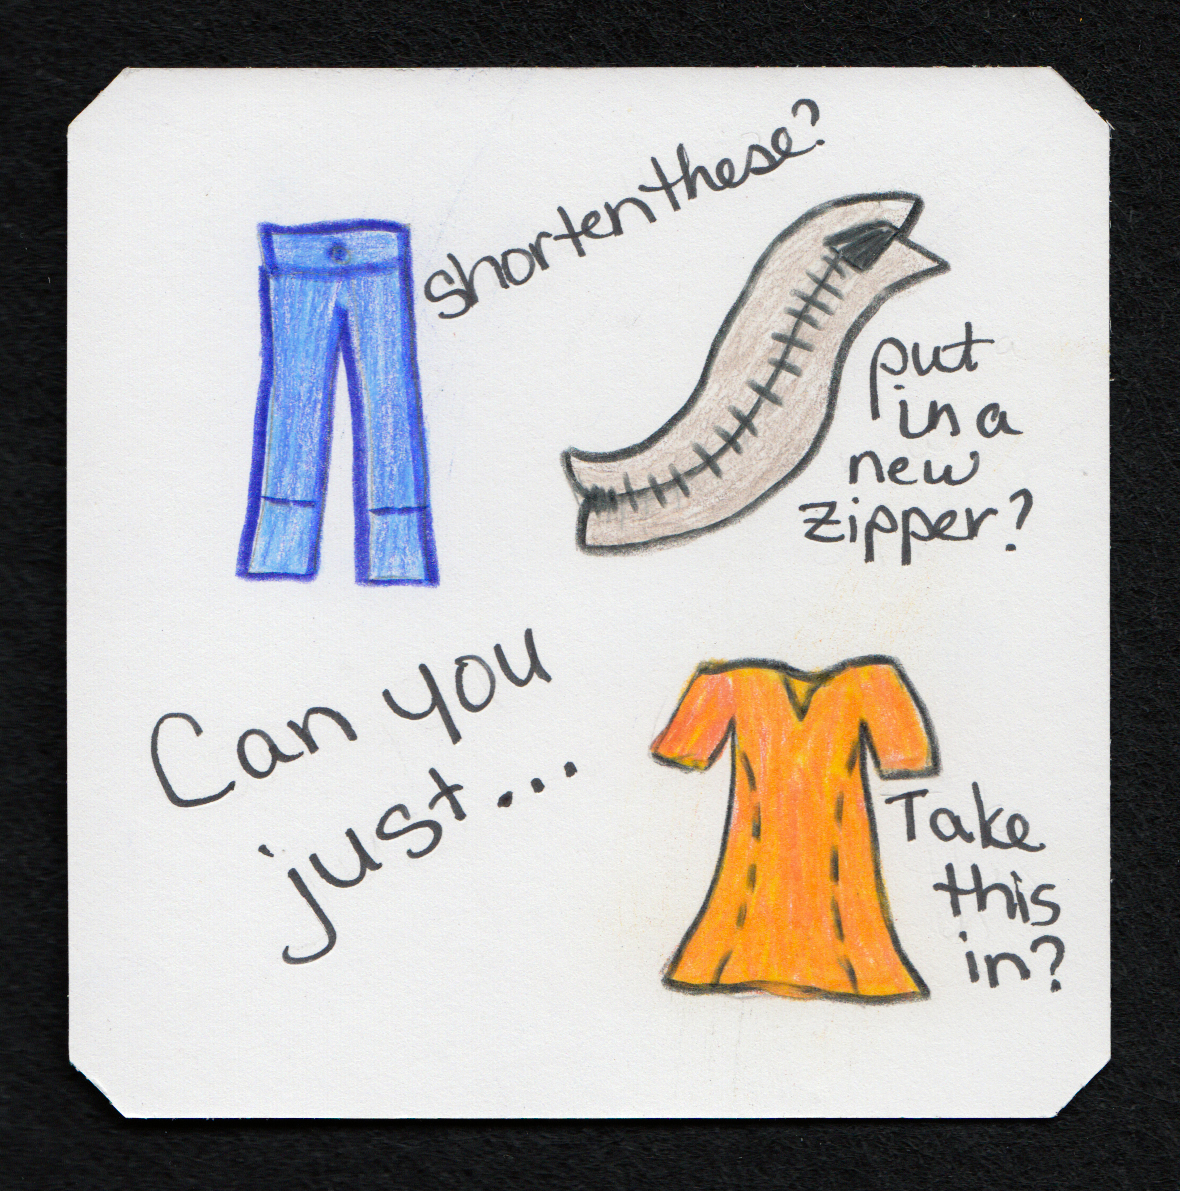 shorten these?
put
in a
new
zipper?
Can you
just...
Take
this
in?